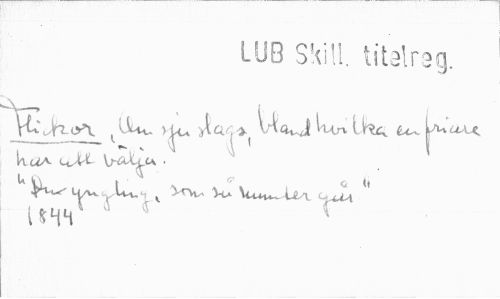 LUB Skill. titelreg.
Flickor, Om sju slags, bland hvilka en friare
har att välja.
"Du yngling, som så munter går"
1844